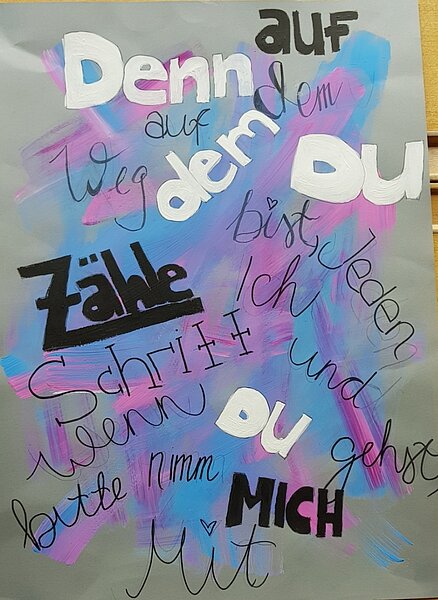 Denn auf dem
Weg auf dem Du
bist,
Zähle Ich Jeden
Schritt und
wenn Du gehst,
bitte nimm MICH
Mit